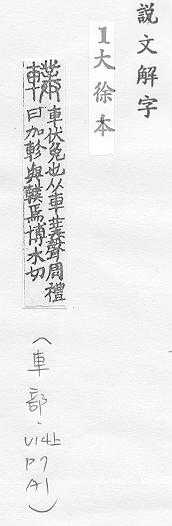 説文解字
1大徐本
轐 車伏兔也从車菐聲周禮
曰加軫與轐焉博木切
(車部.U14上
P7
A1)